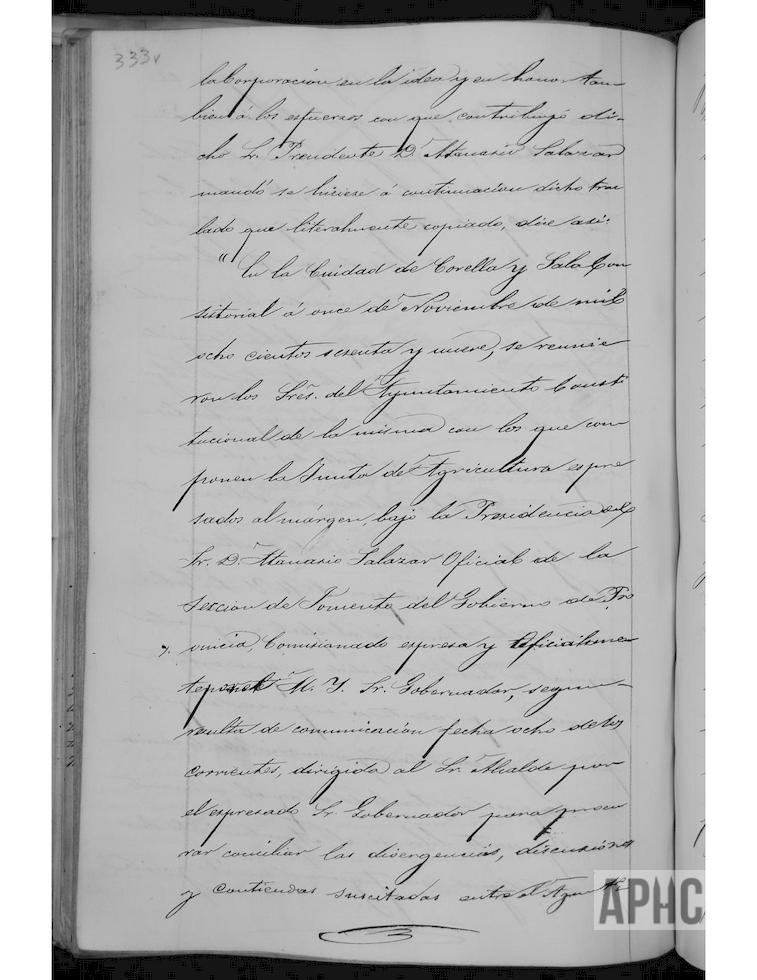 333v
la Corporacion en la idea y en honor tam-
bien á los esfuerzos con que contribuyó di-
cho Sr. Presidente D. Atanasio Salazar
mandó se hiciese á continuacion dicho tras
lado que literalmente copiado, dice asi:
"En la Ciudad de Corella y Sala Con
sistorial á once de Noviembre de mil
ocho cientos sesenta y nueve, se reunie
ron los Sres. del Ayuntamiento Consti
tucional de la misma con los que com
ponen la Junta de Agricultura espre
sados al márgen, bajo la Presidencia del
Sr. D. Atanasio Salazar Oficial de la
Seccion de Fomento del Gobierno de Pro
vincia, Comisionado espresa y oficialmen
te por el M. Y. Sr. Gobernador, segun
resulta de comunicacion fecha ocho de los
corrientes, dirigida al Sr. Alcalde por
el espresado Sr. Gobernador para procu
rar conciliar las divergencias, discusiones
y contiendas suscitadas entre el Ayunta
APHC